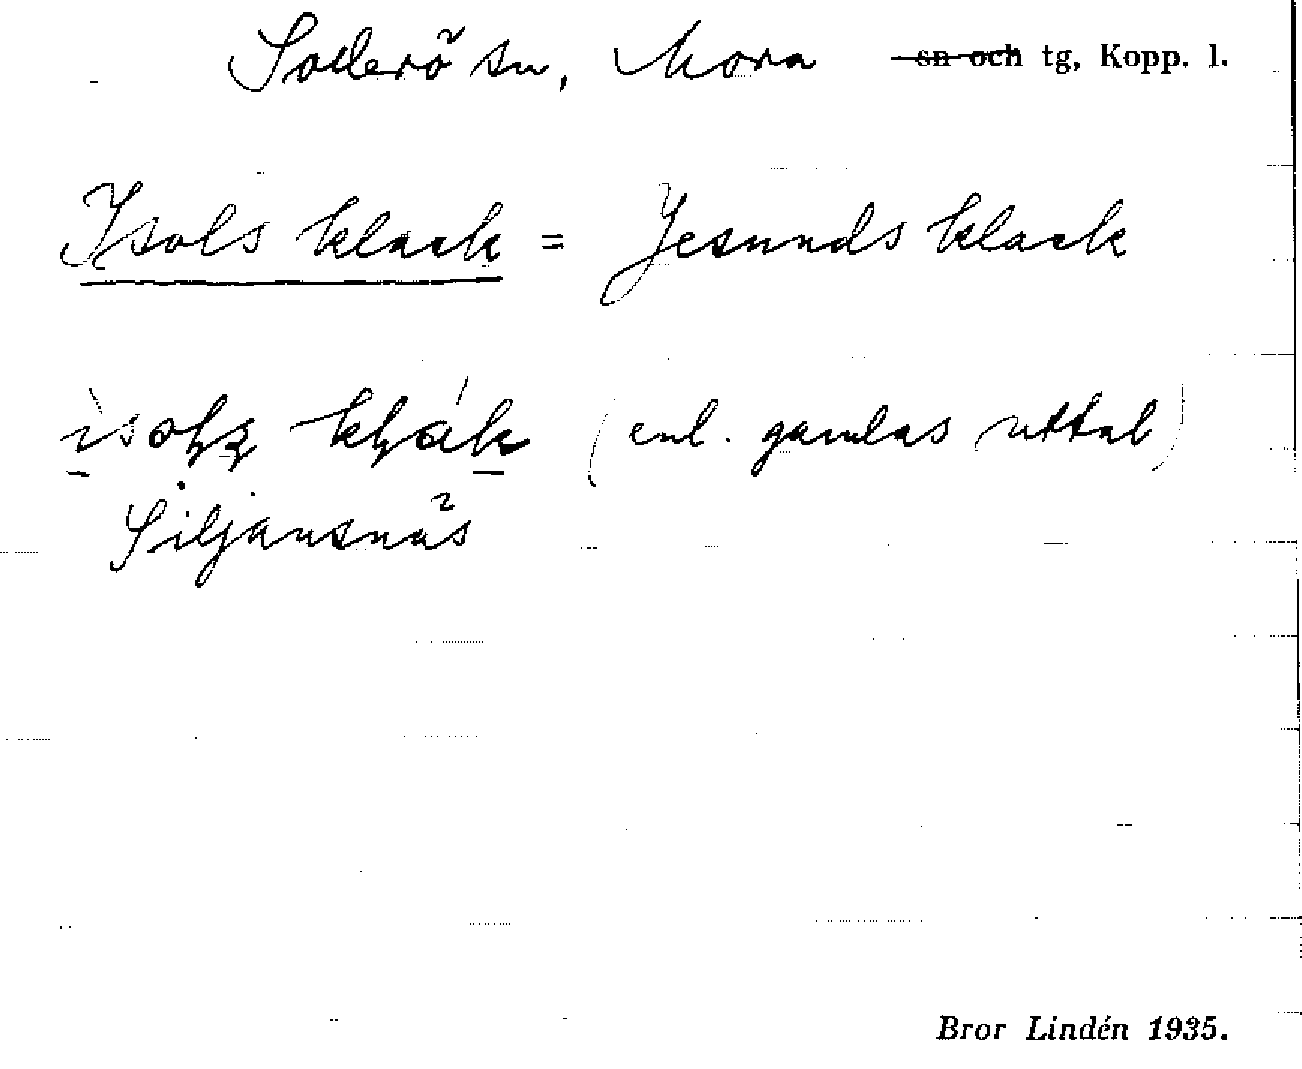 Sollerö sn, Mora sn och tg, Kopp. l.
Isols klack = Jesunds klack
(enl. gamlas uttal)
Siljansnäs
Bror Lindén 1935.